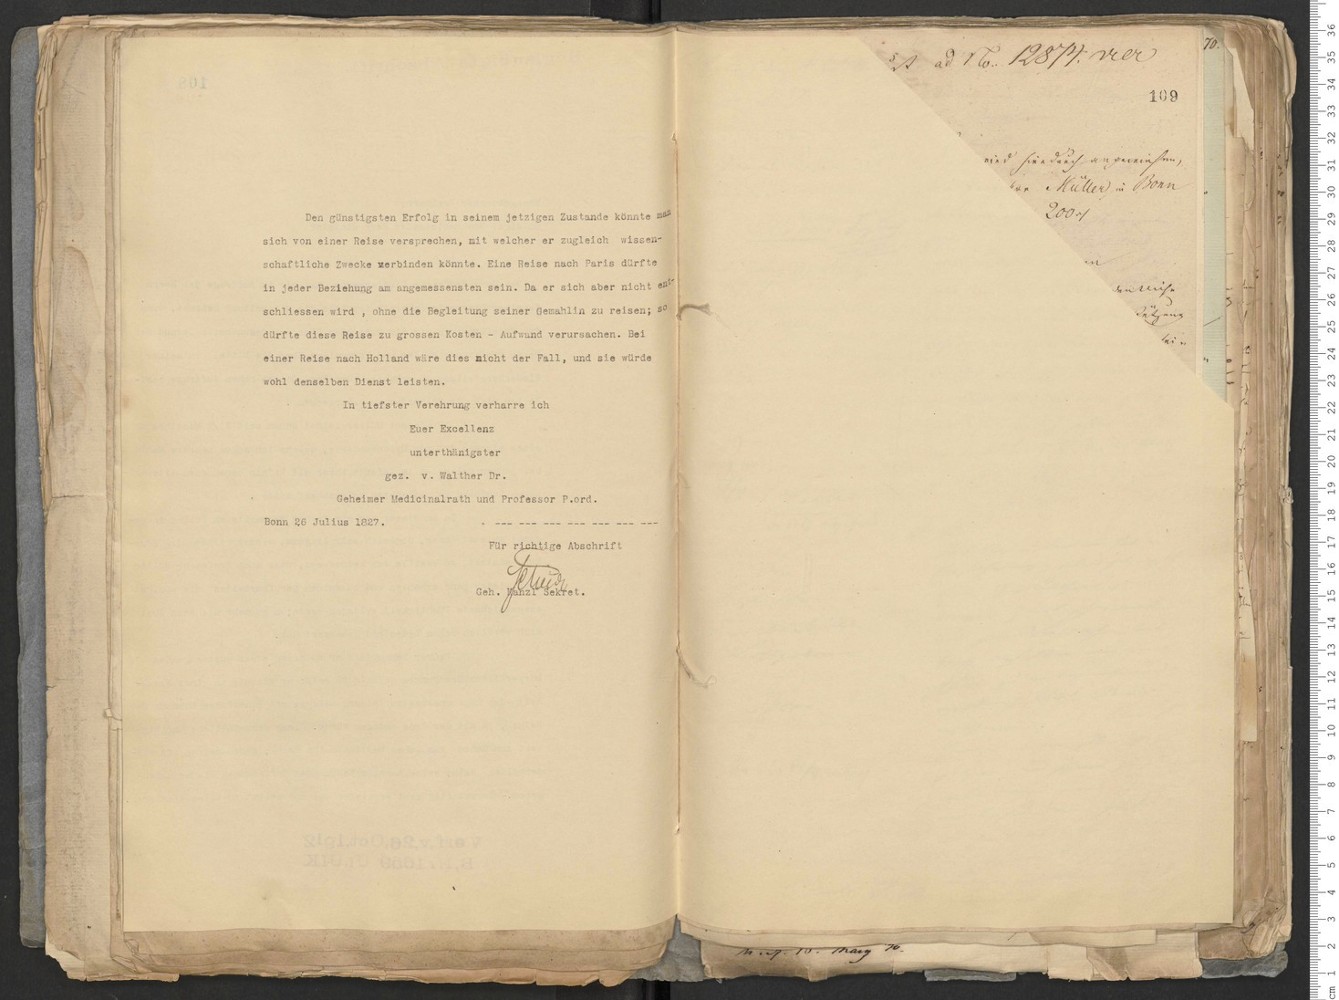 Den günstigsten Erfolg in seinem jetzigen Zustande könnte man
sich von einer Reise versprechen, mit welcher er zugleich wissen-
schaftliche Zwecke verbinden könnte. Eine Reise nach Paris dürfte
in jeder Beziehung am angemessensten sein. Da er sich aber nicht ent-
schliessen wird , ohne die Begleitung seiner Gemahlin zu reisen; so
dürfte diese Reise zu grossen Kosten - Aufwand verursachen. Bei
einer Reise nach Holland wäre dies nicht der Fall, und sie würde
wohl denselben Dienst leisten.
In tiefster Verehrung verharre ich
Euer Excellenz
unterthänigster
gez. v. Walther Dr.
Geheimer Medicinalrath und Professor P.ord.
Bonn 26 Julius 1827. . --- --- --- --- --- --- ---
Für richtige Abschrift
Geh. Kanzl Sekret.
70.
ad No.
109
Müller in Bonn
200